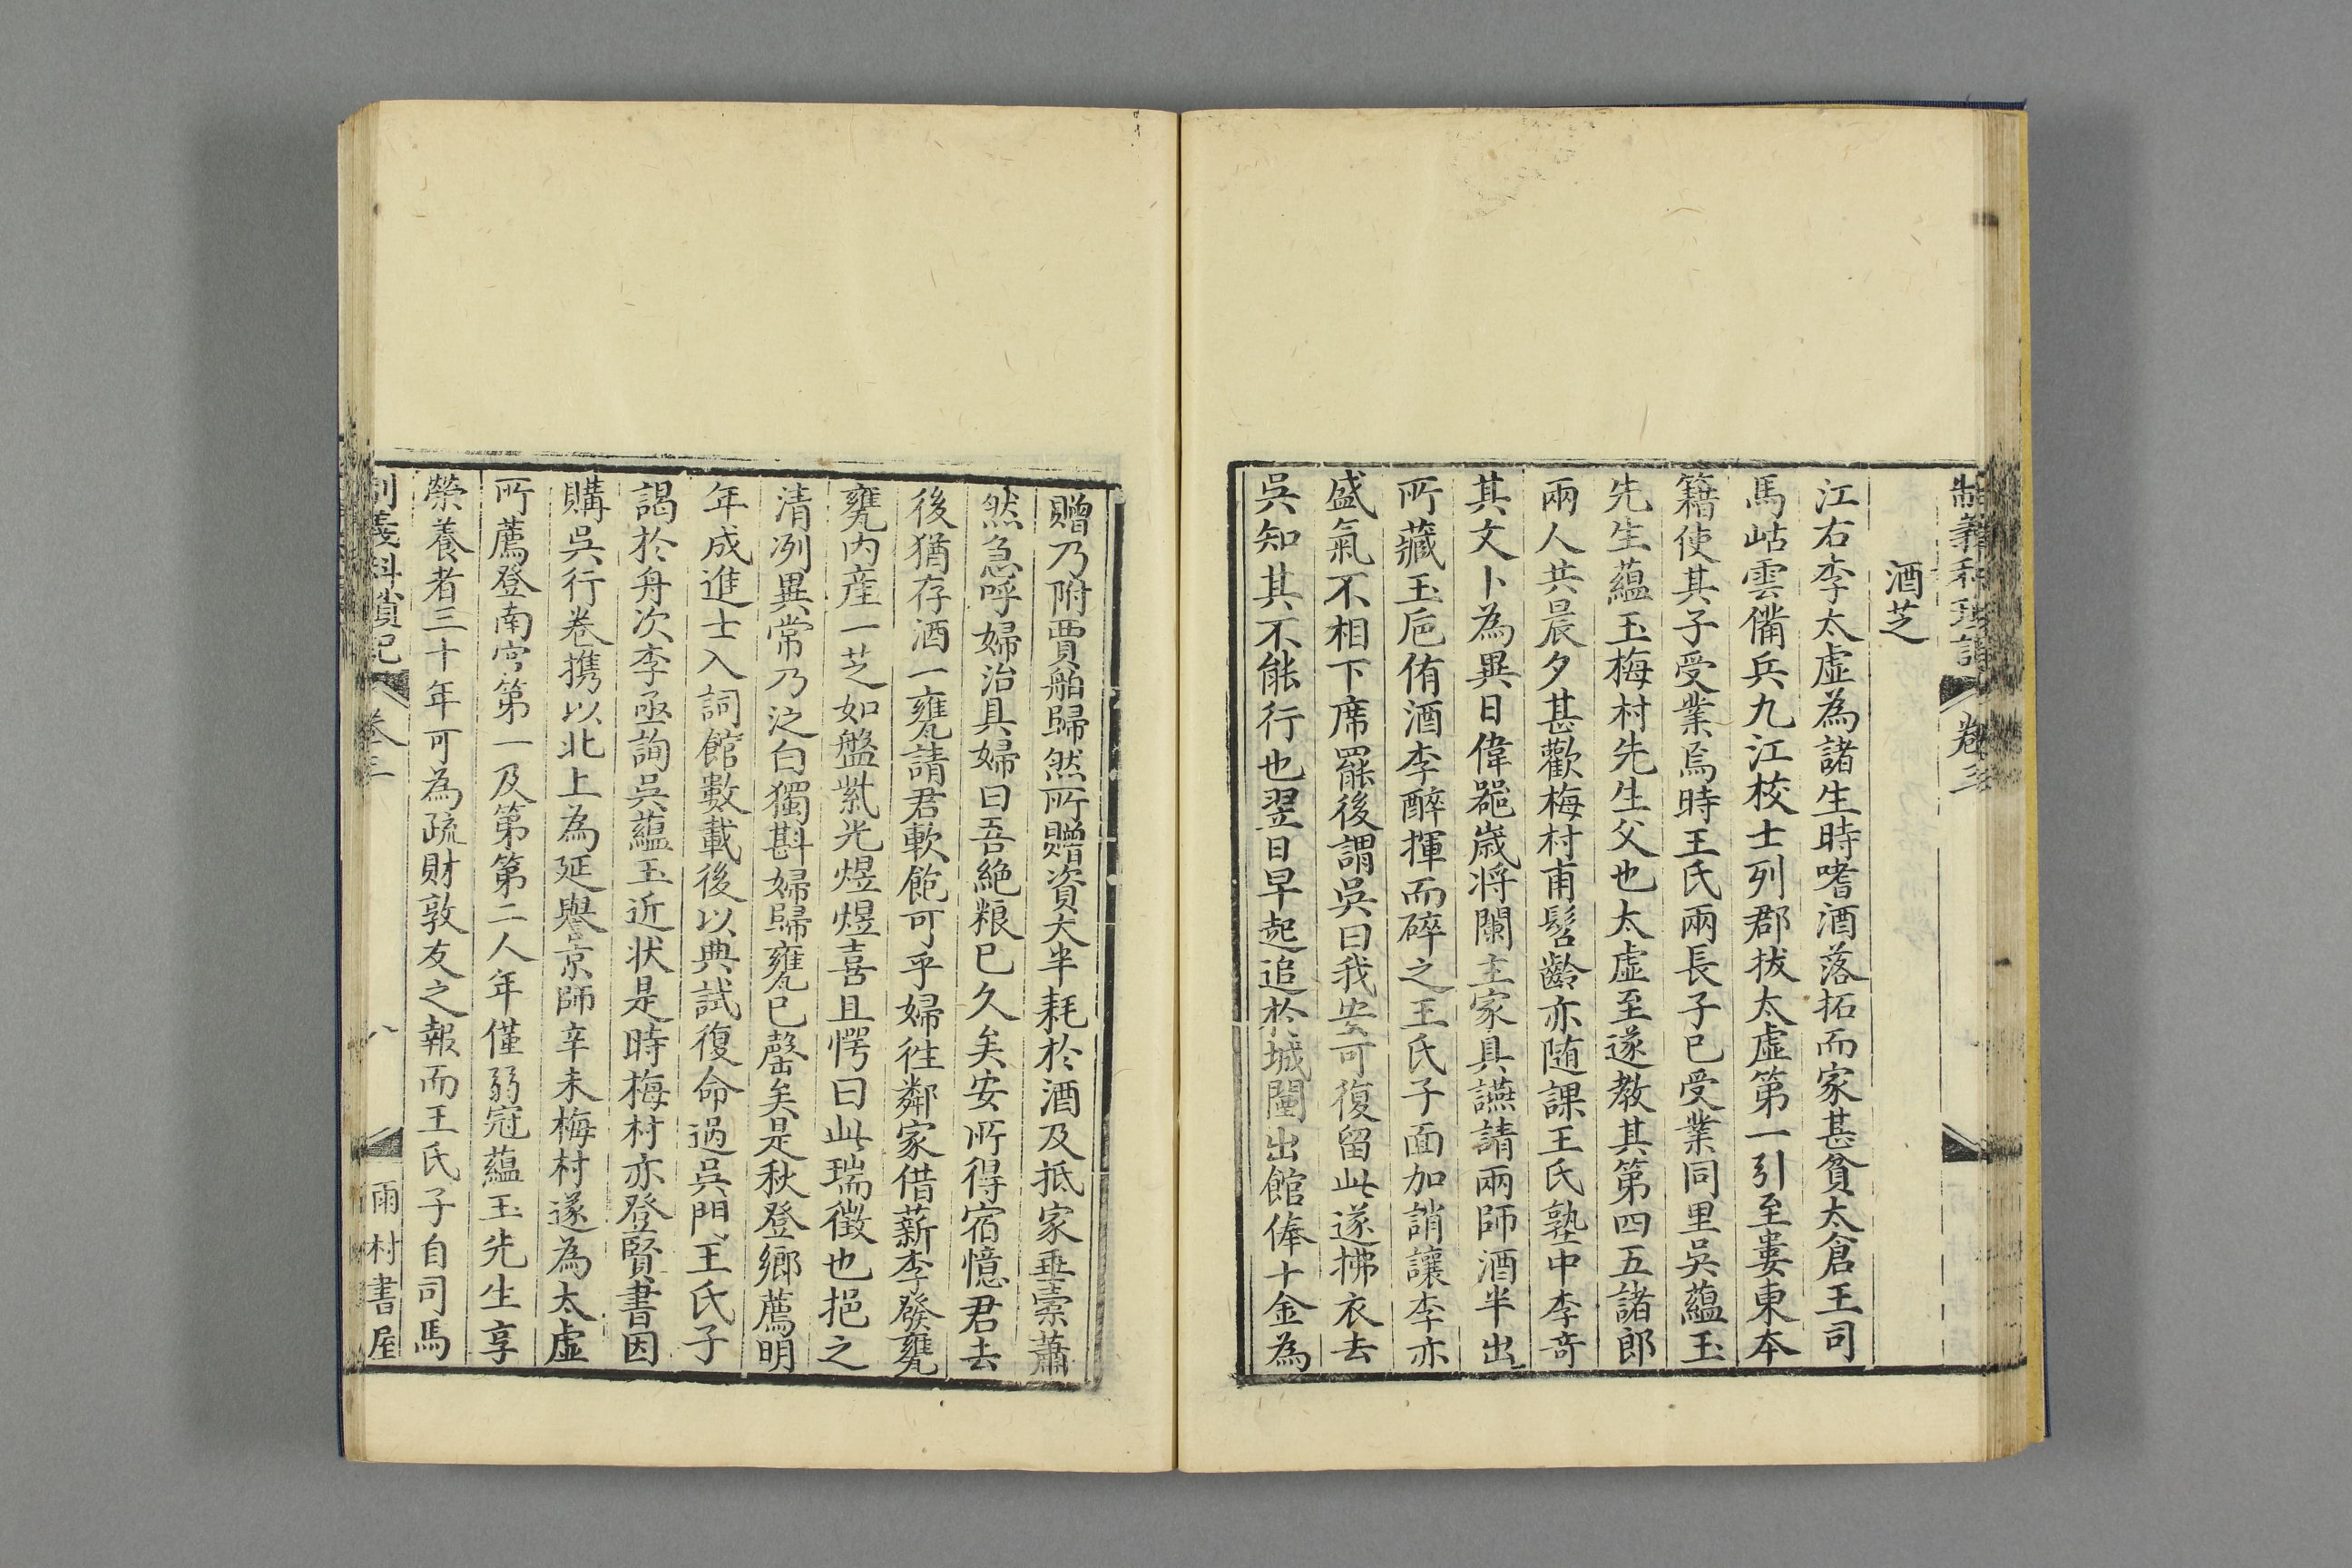 制義科瑣記 卷三
酒芝
江右李太虛為諸生時嗜酒落拓而家甚貧太倉王司
馬岵雲備兵九江校士列郡拔太虛第一引至婁東本
籍使其子受業焉時王氏兩長子已受業同里吳蘊玉
先生蘊玉梅村先生父也太虛至遂教其第四五諸郎
兩人共晨夕甚歡梅村甫髫齡亦隨課王氏塾中李竒
其文卜為異日偉器歲将闌主家具讌請兩師酒半出
所藏玉巵侑酒李醉揮而碎之王氏子面加誚讓李亦
盛氣不相下席罷後謂吳曰我安可復留此遂拂衣去
吳知其不能行也翌日早起追於城闉出館俸十金為
贈乃附賈舶歸然所贈資大半耗於酒及抵家垂橐蕭
然急呼婦治具婦曰吾絶粮已久矣安所得宿憶君去
後猶存酒一甕請君軟飽可乎婦徃鄰家借薪李發甕
甕内産一芝如盤紫光煜煜喜且愕曰此瑞徵也挹之
清冽異常乃泛白獨斟婦歸甕已罄矣是秋登鄉薦明
年成進士入詞館數載後以典試復命過吳門王氏子
謁於舟次李亟詢吳蘊玉近状是時梅村亦登賢書因
購吳行卷携以北上為延譽京師辛未梅村遂為太虛
所薦登南宮第一及第第二人年僅弱冠蘊玉先生享
榮養者三十年可為疏財敦友之報而王氏子自司馬
制義科瑣記 卷三 八 雨村書屋